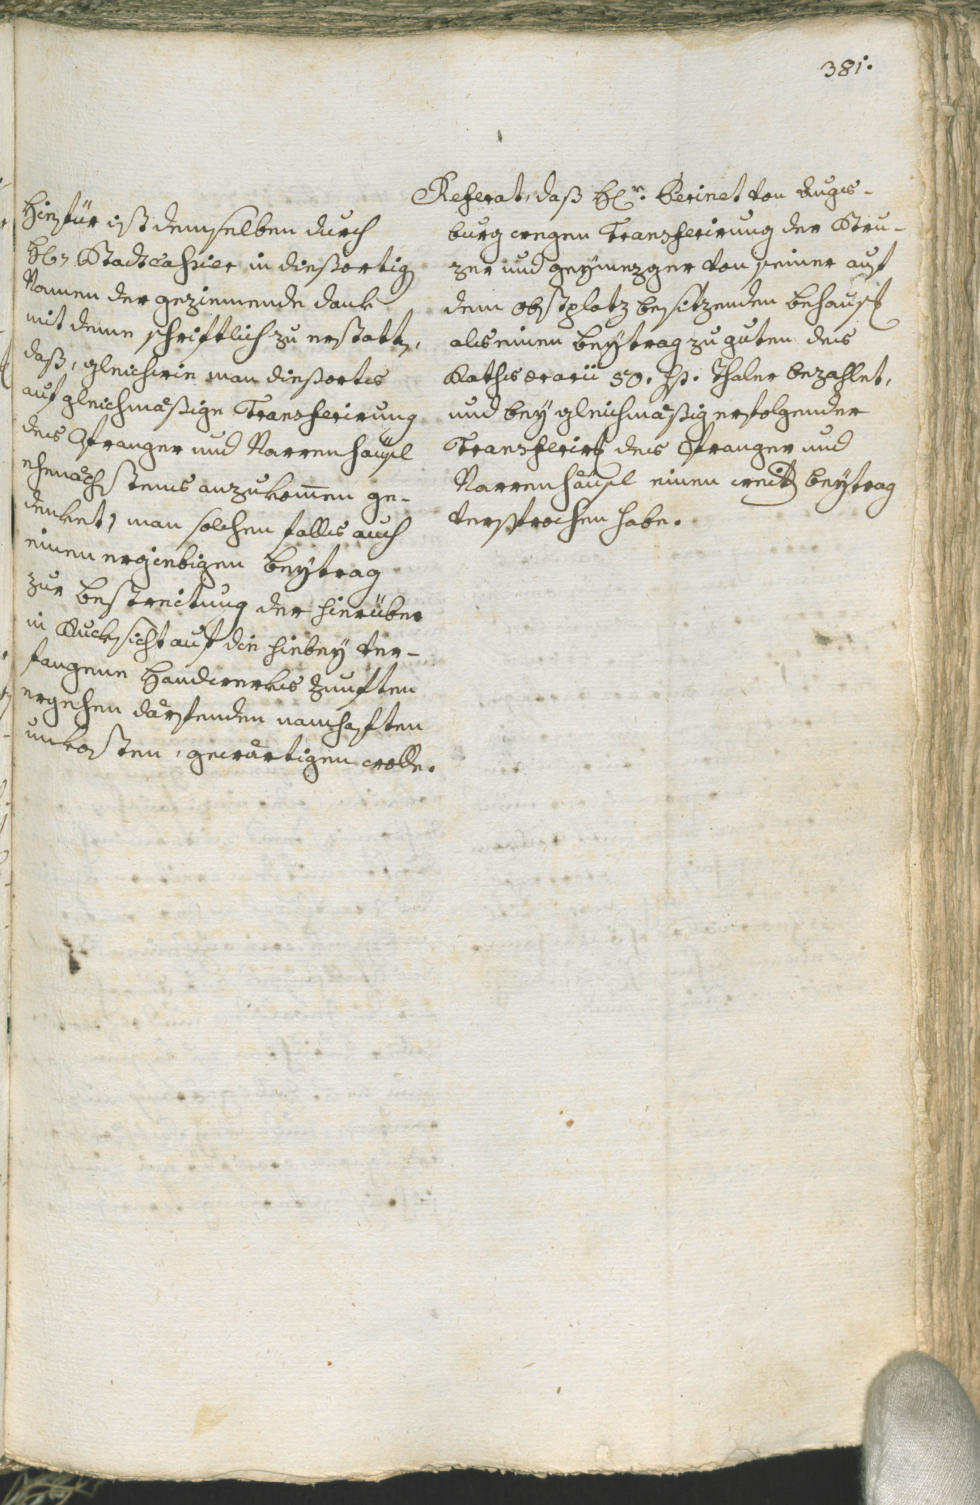 381.
Hinfür ist demselben durch
H. Stadtcassier in dießortig
Namen der geziemende dank
mit deme schriftlich zu erstatten,
daß, gleichwie man dießortes
auf gleichmäßige Transferirung
des Pranger und Narrenhäusl
ehenächstens anzukom̅en ge-
denket, man solchen falls auch
einen ergiebigen beytrag
zur bestreitung der hierüber
in Rucksicht auf die hiebey ver-
fangene Handwerks Zunften
ergehen därfenden namhaften
unkosten, gewärtigen wolle.
Referat, daß H. Berinet von Augs-
burg wegen Transferirung der Kreu-
zer und geymezger von seiner auf
dem obstplatz besitzenden behausg
als einen beytrag zu guten des
Raths ærarii 50. Sp. Thaler bezahlet,
und bey gleichmäßig erfolgender
Transferirg des Pranger und
Narrenhäusl einen weitern beytrag
versprochen habe.